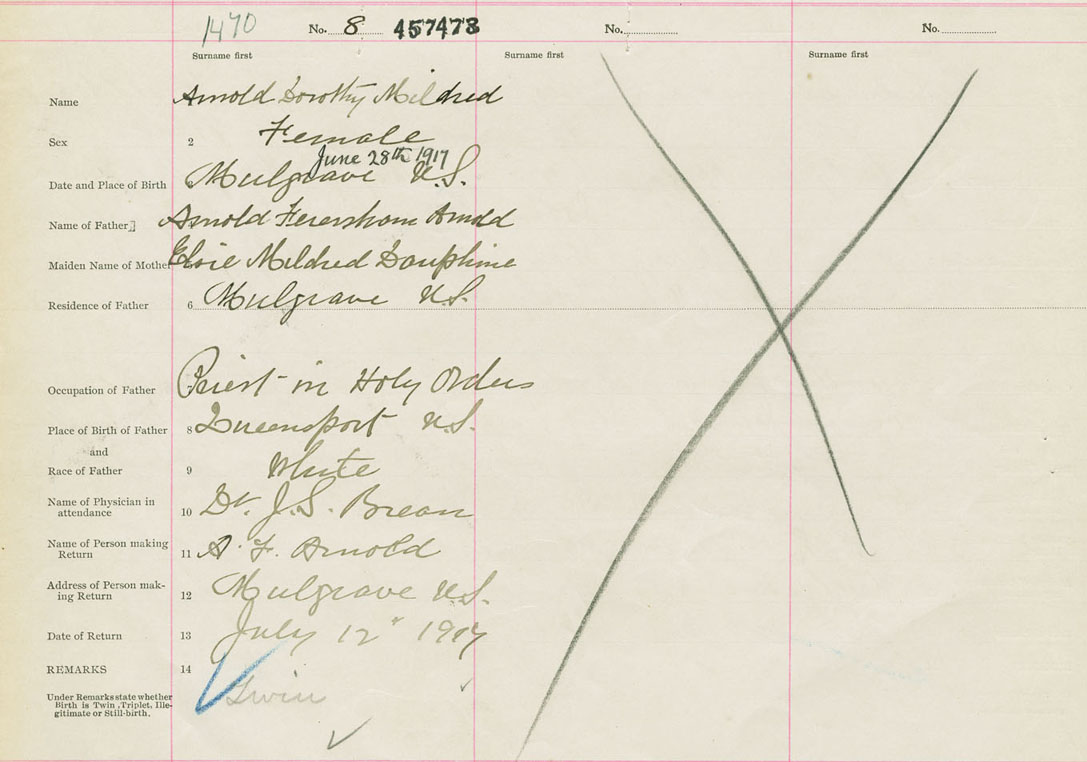 1470
No. 8 457473
No.
No.
Surname first
Surname first
Surname first
Name Arnold Dorothy Mildred
Sex 2 Female
June 28th 1917
Date and Place of Birth Mulgrave N.S.
Name of Father] Arnold Feversham Arnold
Maiden Name of Mother Elsie Mildred Dauphine
Residence of Father 6 Mulgrave N.S.
Occupation of Father Priest in Holy Orders
Place of Birth of Father 8 Queensport N.S.
and
Race of Father 9 White
Name of Physician in
attendance 10 Dr. J.S. Brean
Name of Person making
Return 11 A. F. Arnold
Address of Person mak-
ing Return 12 Mulgrave N.S.
Date of Return 13 July 12" 1917
REMARKS 14
Under Remarks state whether
Birth is Twin, Triplet, Ille-
gitimate or Still-birth.
Twin